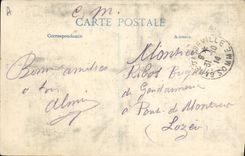 C. M.
CARTE POSTALE
Correspondance
Adresse
Bonne amitiés
à toi
Monsieur
Ribos Eugène
de Gendarmerie
à Pont de Montvert
(Lozère)
SOMME